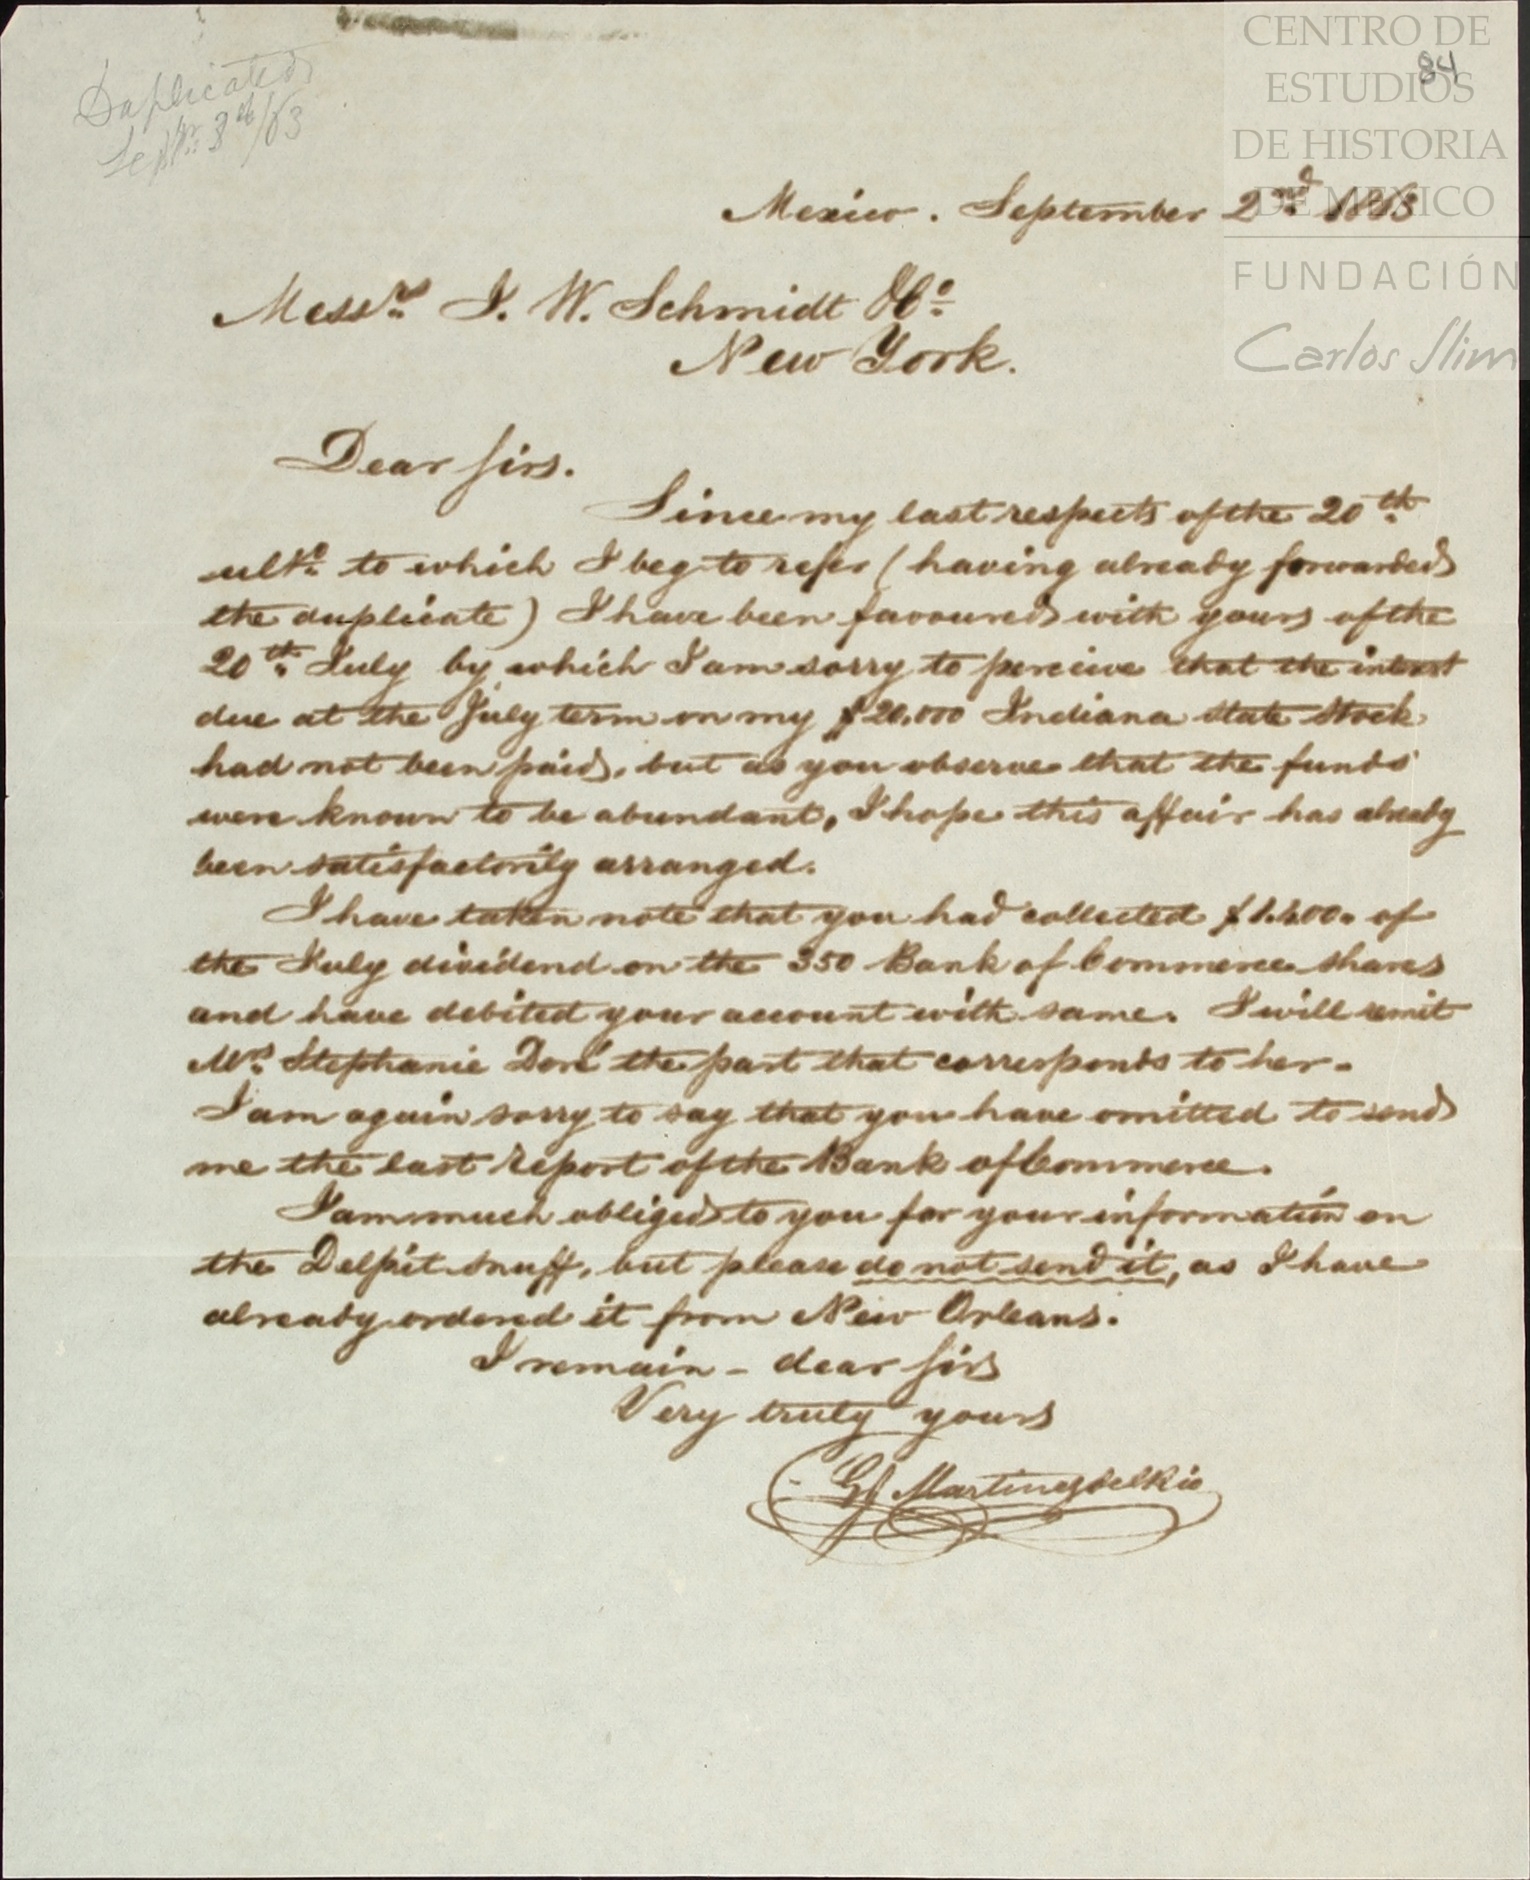 Duplicated
Septr. 3d/63
84
CENTRO DE
ESTUDIOS
DE HISTORIA
DE MEXICO
FUNDACIÓN
Carlos Slim
Mexico. September 2nd 1863
Messrs J. W. Schmidt & Co.
New York.
Dear Sirs.
Since my last respects of the 20th
ulto. to which I beg to refer (having already forwarded
the duplicate) I have been favoured with yours of the
20th July by which I am sorry to perceive that the interest
due at the July term on my $20,000 Indiana state stock
had not been paid, but as you observe that the funds
were known to be abundant, I hope this affair has already
been satisfactorily arranged.
I have taken note that you had collected of
the July dividend on the 350 Bank of Commerce shares
and have debited your account with same. I will remit
Mrs. Stephanie Doré the part that corresponds to her.
I am again sorry to say that you have omitted to send
me the last report of the Bank of Commerce.
I am much obliged to you for your information on
the Delpit snuff, but please do not send it, as I have
already ordered it from New Orleans.
I remain - dear Sirs
Very truly yours
Martinezdelrio